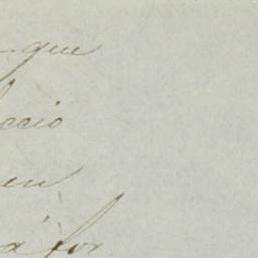 que
ccio
en
a for